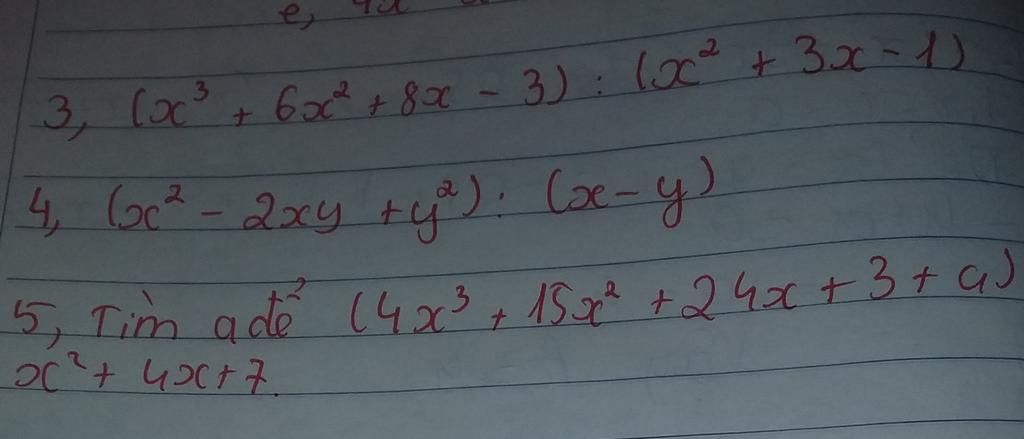 e, 4x
3, (x³ + 6x² + 8x - 3) : (x² + 3x - 1)
4, (x² - 2xy + y²) : (x - y)
5, Tìm a để (4x³ + 15x² + 24x + 3 + a)
x² + 4x + 7.